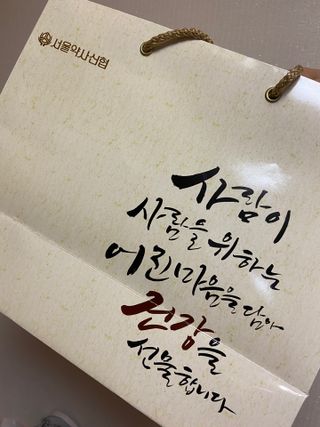 서울약사신협
사람이
사람을 위하는
어진마음을 담아
건강을
선물합니다